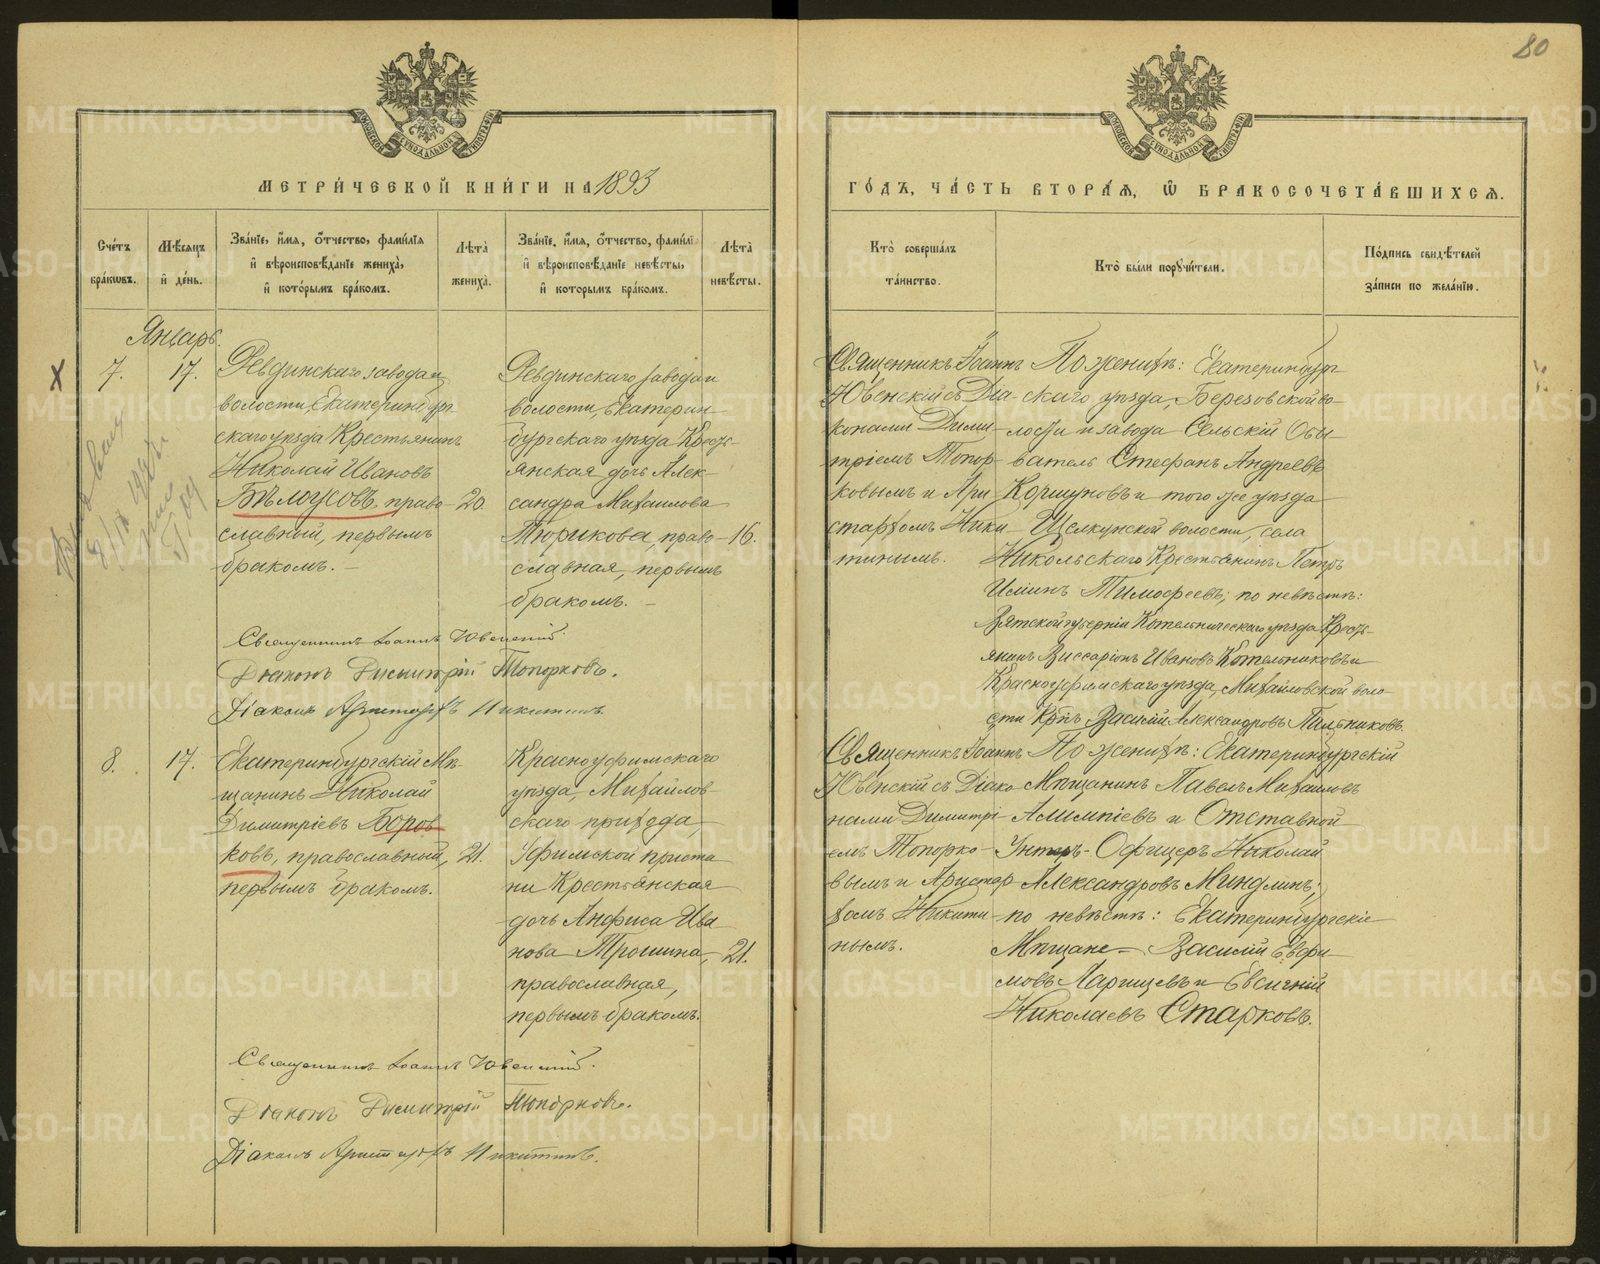 80
МЕТРИ́ЧЕСКОЙ КНИ́ГИ НА 1893
ГО́ДЪ, ЧА́СТЬ ВТОРА́Я, Ѿ БРАКОСОЧЕТА́ВШИХСЯ.
Сче́тъ бра́кѡвъ.
Мѣ́сяцъ и҆ де́нь.
Зва́нїе, и҆́мя, ѻ҆́тчество, фамѝлїя
и҆ вѣроисповѣ́данїе жениха̀,
и҆ кото́рымъ бра́комъ.
Лѣта̀ жениха̀.
Зва́нїе, и҆́мя, ѻ҆́тчество, фамѝлїя
и҆ вѣроисповѣ́данїе невѣ́сты,
и҆ которымъ бра́комъ.
Лѣта̀ невѣ́сты.
Кто̀ соверша́лъ
та́инство.
Кто̀ бы́ли порꙋчи́тели.
По́дпись свидѣ́телей
за́писи по жела́нїю.
Январь.
7.
17.
Ревдинскаго завода и
волости, Екатеринбург
скаго уѣзда Крестьянинъ
Николай Ивановъ
Бѣлоусовъ, право
славный, первымъ
бракомъ.
20.
Ревдинскаго завода и
волости, Екатерин
бургскаго уѣзда Кресть
янская дочь Алек
сандра Михаилова
Тюрикова, право
славная, первымъ
бракомъ.
16.
Священникъ Іоаннъ
Ювенскій съ Діа
конами Дими
тріемъ Топор
ковымъ и Ари
стархомъ Ники
тинымъ.
По женихѣ: Екатеринбург
скаго уѣзда, Березовской во
лости и завода Сельскій Обы
ватель Стефанъ Андреевъ
Коршуновъ и того же уѣзда
Щелкунской волости, села
Никольскаго Крестьянинъ Петръ
Ильинъ Тимофеевъ; по невѣстѣ:
Вятской губерніи Котельническаго уѣзда Кресть
янинъ Виссаріонъ Ивановъ Котельниковъ и
Красноуфимскаго уѣзда, Михайловской воло
сти Крнъ Василій Александровъ Пильниковъ.
Священникъ Іоаннъ Ювенскій.
Діаконъ Димитрій Топорковъ.
Діаконъ Аристархъ Никитинъ.
8.
17.
Екатеринбургскій Мѣ
щанинъ Николай
Димитріевъ Боров
ковъ, православный,
первымъ бракомъ.
21.
Красноуфимскаго
уѣзда, Михайлов
скаго прихода,
Уфимской приста
ни Крестьянская
дочь Анфиса Ива
нова Трошина,
православная,
первымъ бракомъ.
21.
Священникъ Іоаннъ
Ювенскій съ Діако
нами Димитрі
емъ Топорко
вымъ и Аристар
хомъ Никити
нымъ.
По женихѣ: Екатеринбургскій
Мѣщанинъ Павелъ Михаиловъ
Алимпіевъ и Отставной
Унтеръ-Офицеръ Николай
Александровъ Миндлинъ;
по невѣстѣ: Екатеринбургскіе
Мѣщане Василій Евфи
мовъ Ларищевъ и Евсигній
Николаевъ Старковъ.
Священникъ Іоаннъ Ювенскій.
Діаконъ Димитрій Топорковъ.
Діаконъ Аристархъ Никитинъ.
METRIKI.GASO-URAL.RU